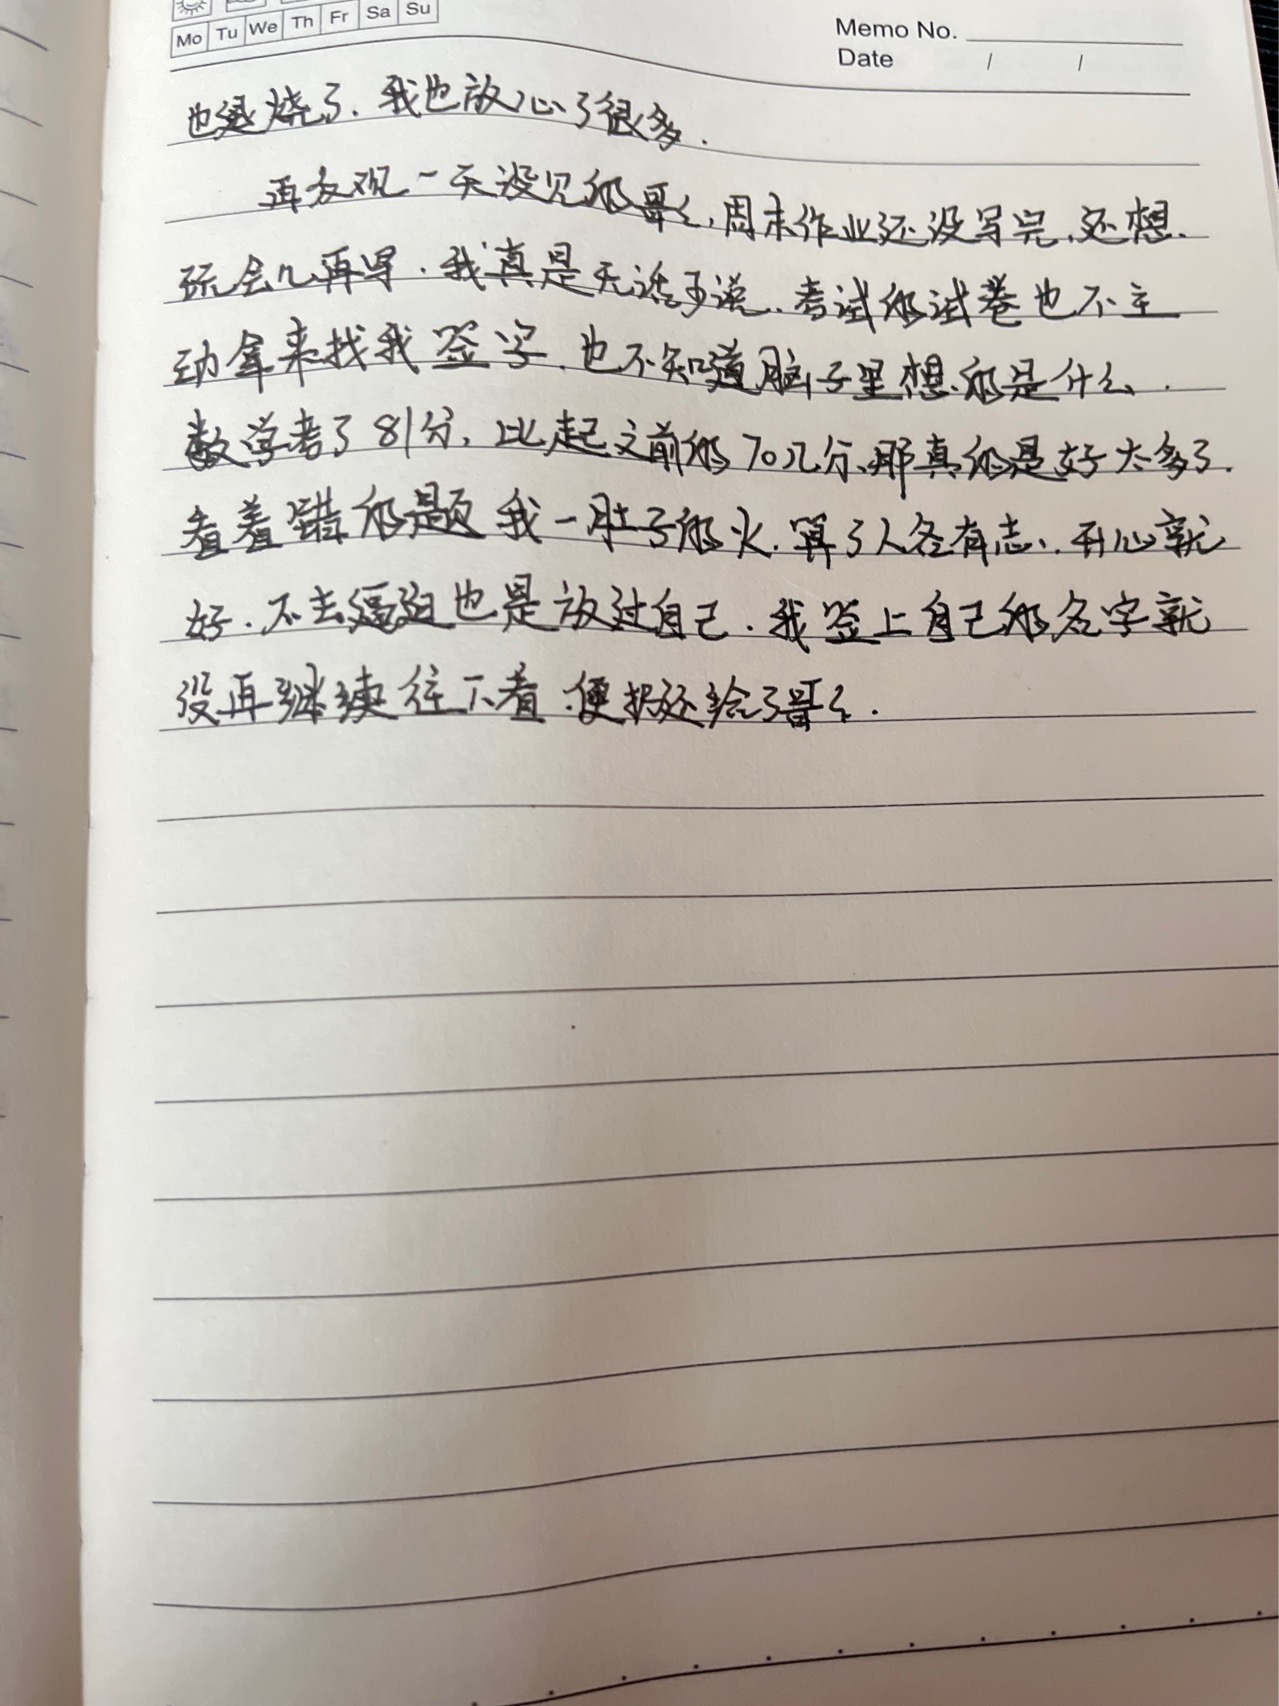 Mo Tu We Th Fr Sa Su
Memo No.
Date / /
也退烧了.我也放心了很多.
再反观一天没见的哥々,周末作业还没写完,还想
玩会儿再写.我真是无话可说,考试的试卷也不主
动拿来找我签字,也不知道脑子里想的是什么.
数学考了81分,比起之前的70几分,那真的是好太多了.
看着错的题我一肚子的火,算了人各有志,开心就
好.不去逼迫也是放过自己.我签上自己的名字就
没再继续往下看.便归还给了哥々.